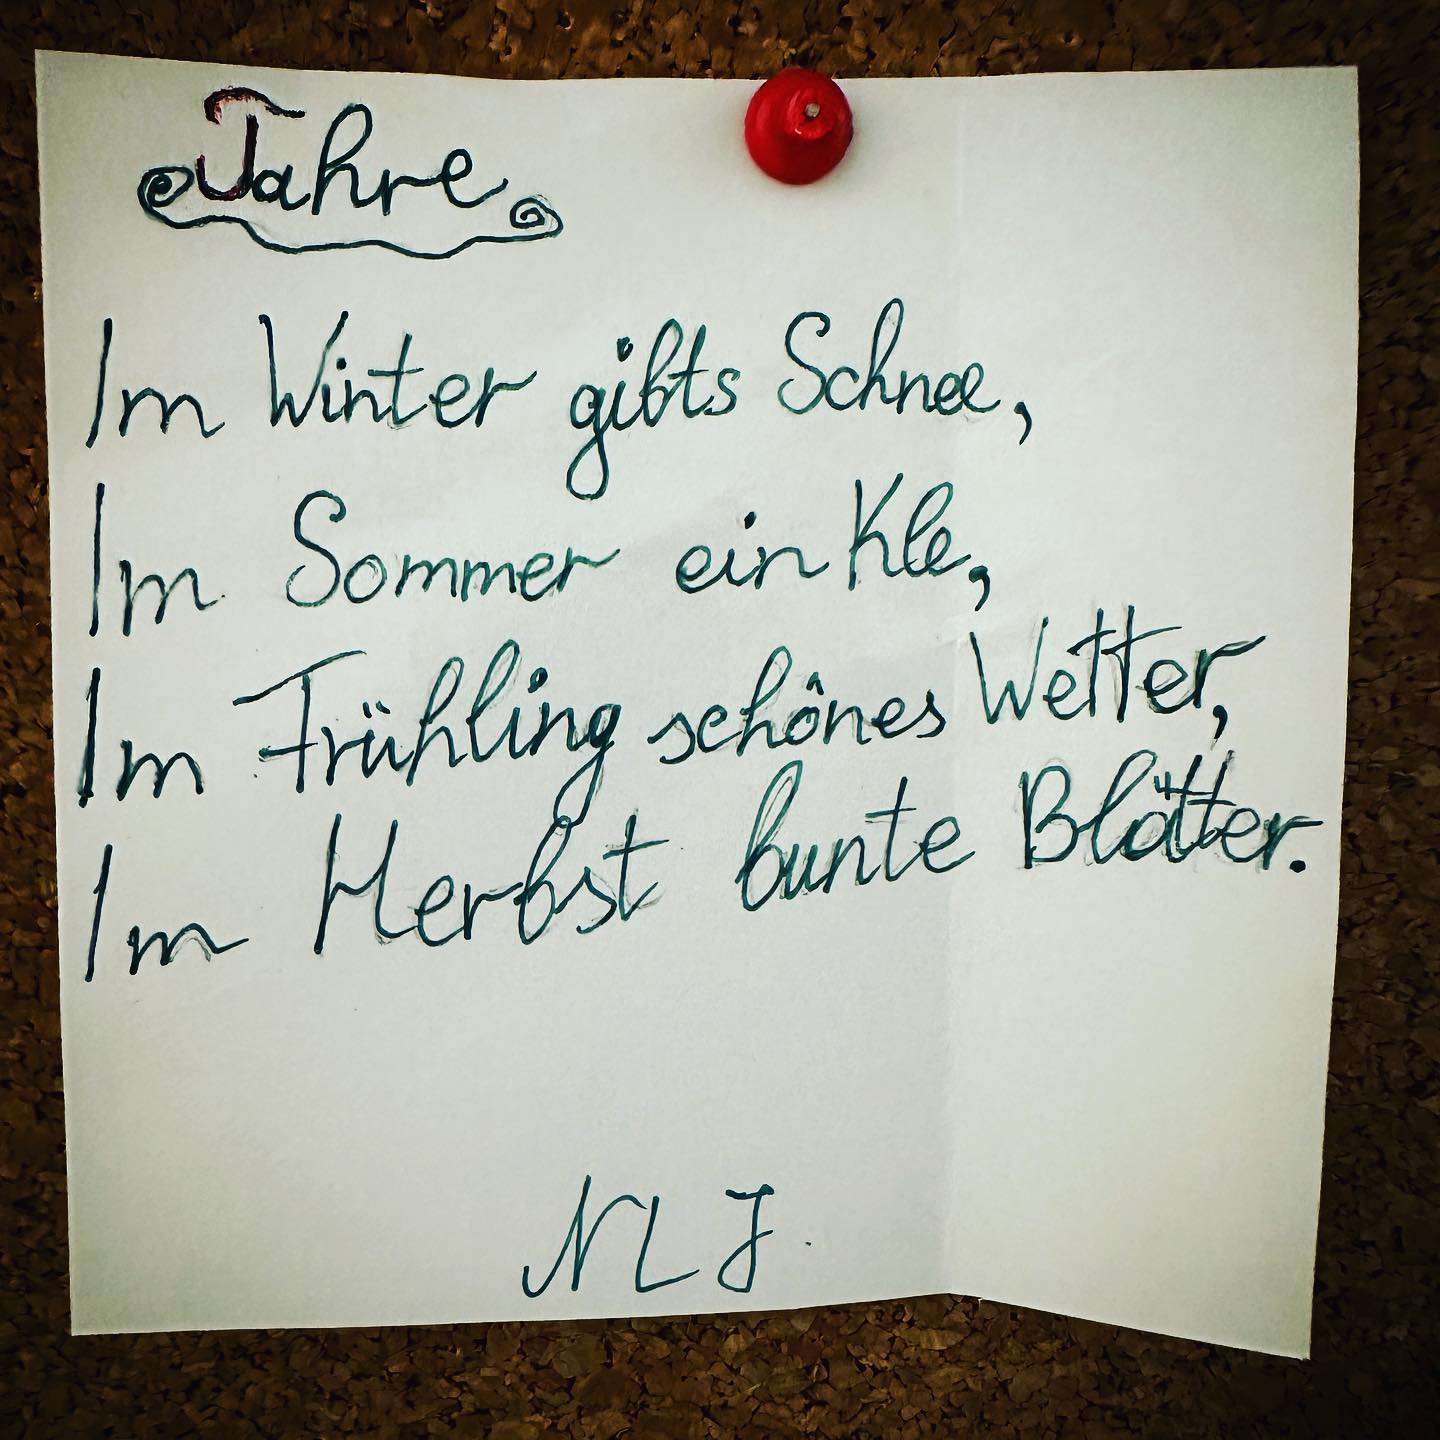 Jahre
Im Winter gibts Schnee,
Im Sommer ein Kle,
Im Frühling schönes Wetter,
Im Herbst bunte Blätter.
NLJ